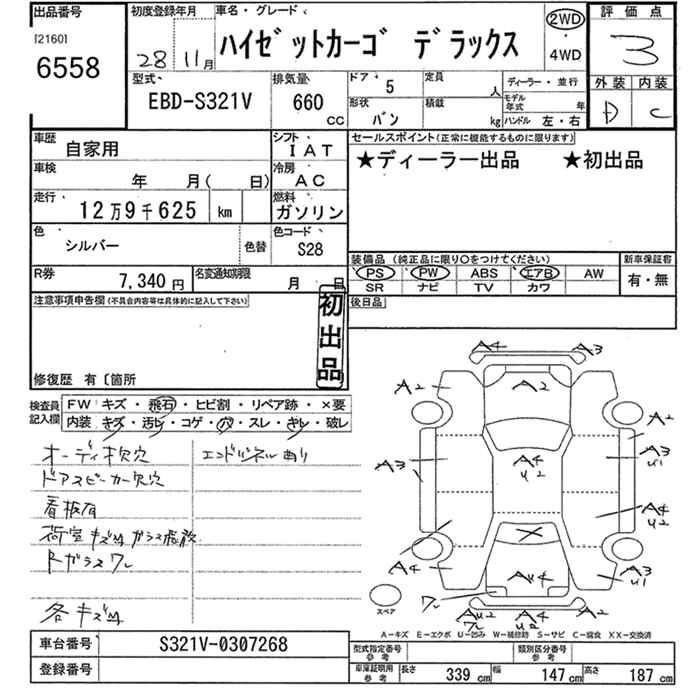 出品番号
[2160]
6558
初度登録年月
28 11月
車名・グレード
ハイゼットカーゴ デラックス
2WD
・
4WD
評価点
3
型式
EBD-S321V
排気量
660
CC
ドア
5
定員
人
ディーラー・並行
形状
バン
積載
kg
モデル年式
年
ハンドル 左・右
外装 内装
D C
車歴
自家用
シフト
IAT
車検
年 月( 日)
冷房
AC
走行
12万9千625 km
燃料
ガソリン
色
シルバー
色替
色コード
S28
R券
7,340円
名変通知期限
月 日
セールスポイント(正常に機能するものに限ります)
★ディーラー出品 ★初出品
装備品 (純正品に限り○をつけてください)
PS PW ABS エアB AW
SR ナビ TV カワ
新車保証書
有・無
後日品
注意事項申告欄(不具合内容等は具体的に記入して下さい)
初出品
修復歴 有〔箇所
検査員記入欄
FW キズ・飛石・ヒビ割・リペア跡・×要
内装 キズ・汚レ・コゲ・穴・スレ・キレ・破レ
オーディオ欠穴
ドアスピーカー欠穴
看板有
各キズ凹
A4 A3
A2 A2 A2
A3 A4 U2 A3 U1
A4 U2
A4 A3 U1
スペア
A-キズ E-エクボ U-凹み W-補修跡 S-サビ C-腐食 XX-交換済
車台番号
S321V-0307268
登録番号
型式指定番号
参考
類別区分番号
参考
車庫証明用
参考
長さ 339 cm 幅 147 cm 高さ 187 cm